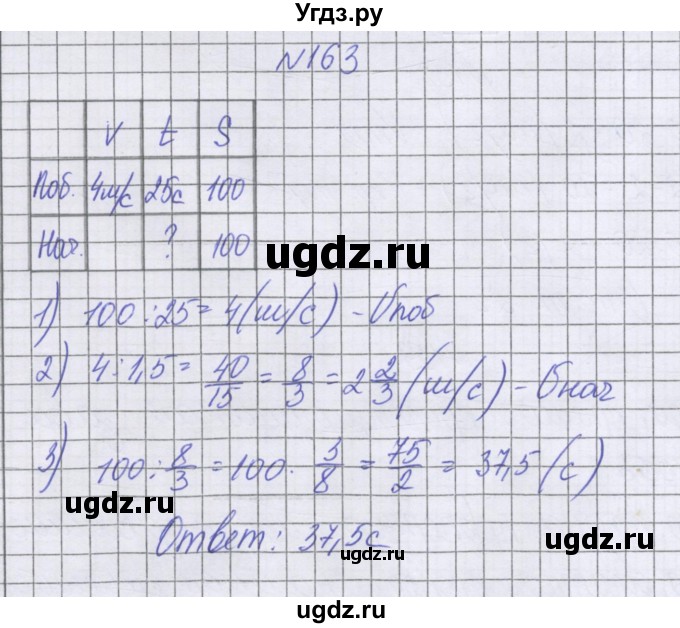 Угдз.ру
№163
V t S
Поб. 4м/с 25с 100
Нач. ? 100
ugdz.ru
1) 100:25=4(м/с) - Vпоб
2) 4:1,5= 40/15 = 8/3 = 2 2/3 (м/с) - Vнач
3) 100: 8/3 = 100· 3/8 = 75/2 = 37,5 (с)
ugdz.ru
ugdz.ru
Ответ: 37,5с
ugdz.ru
ugdz.ru
ugdz.ru